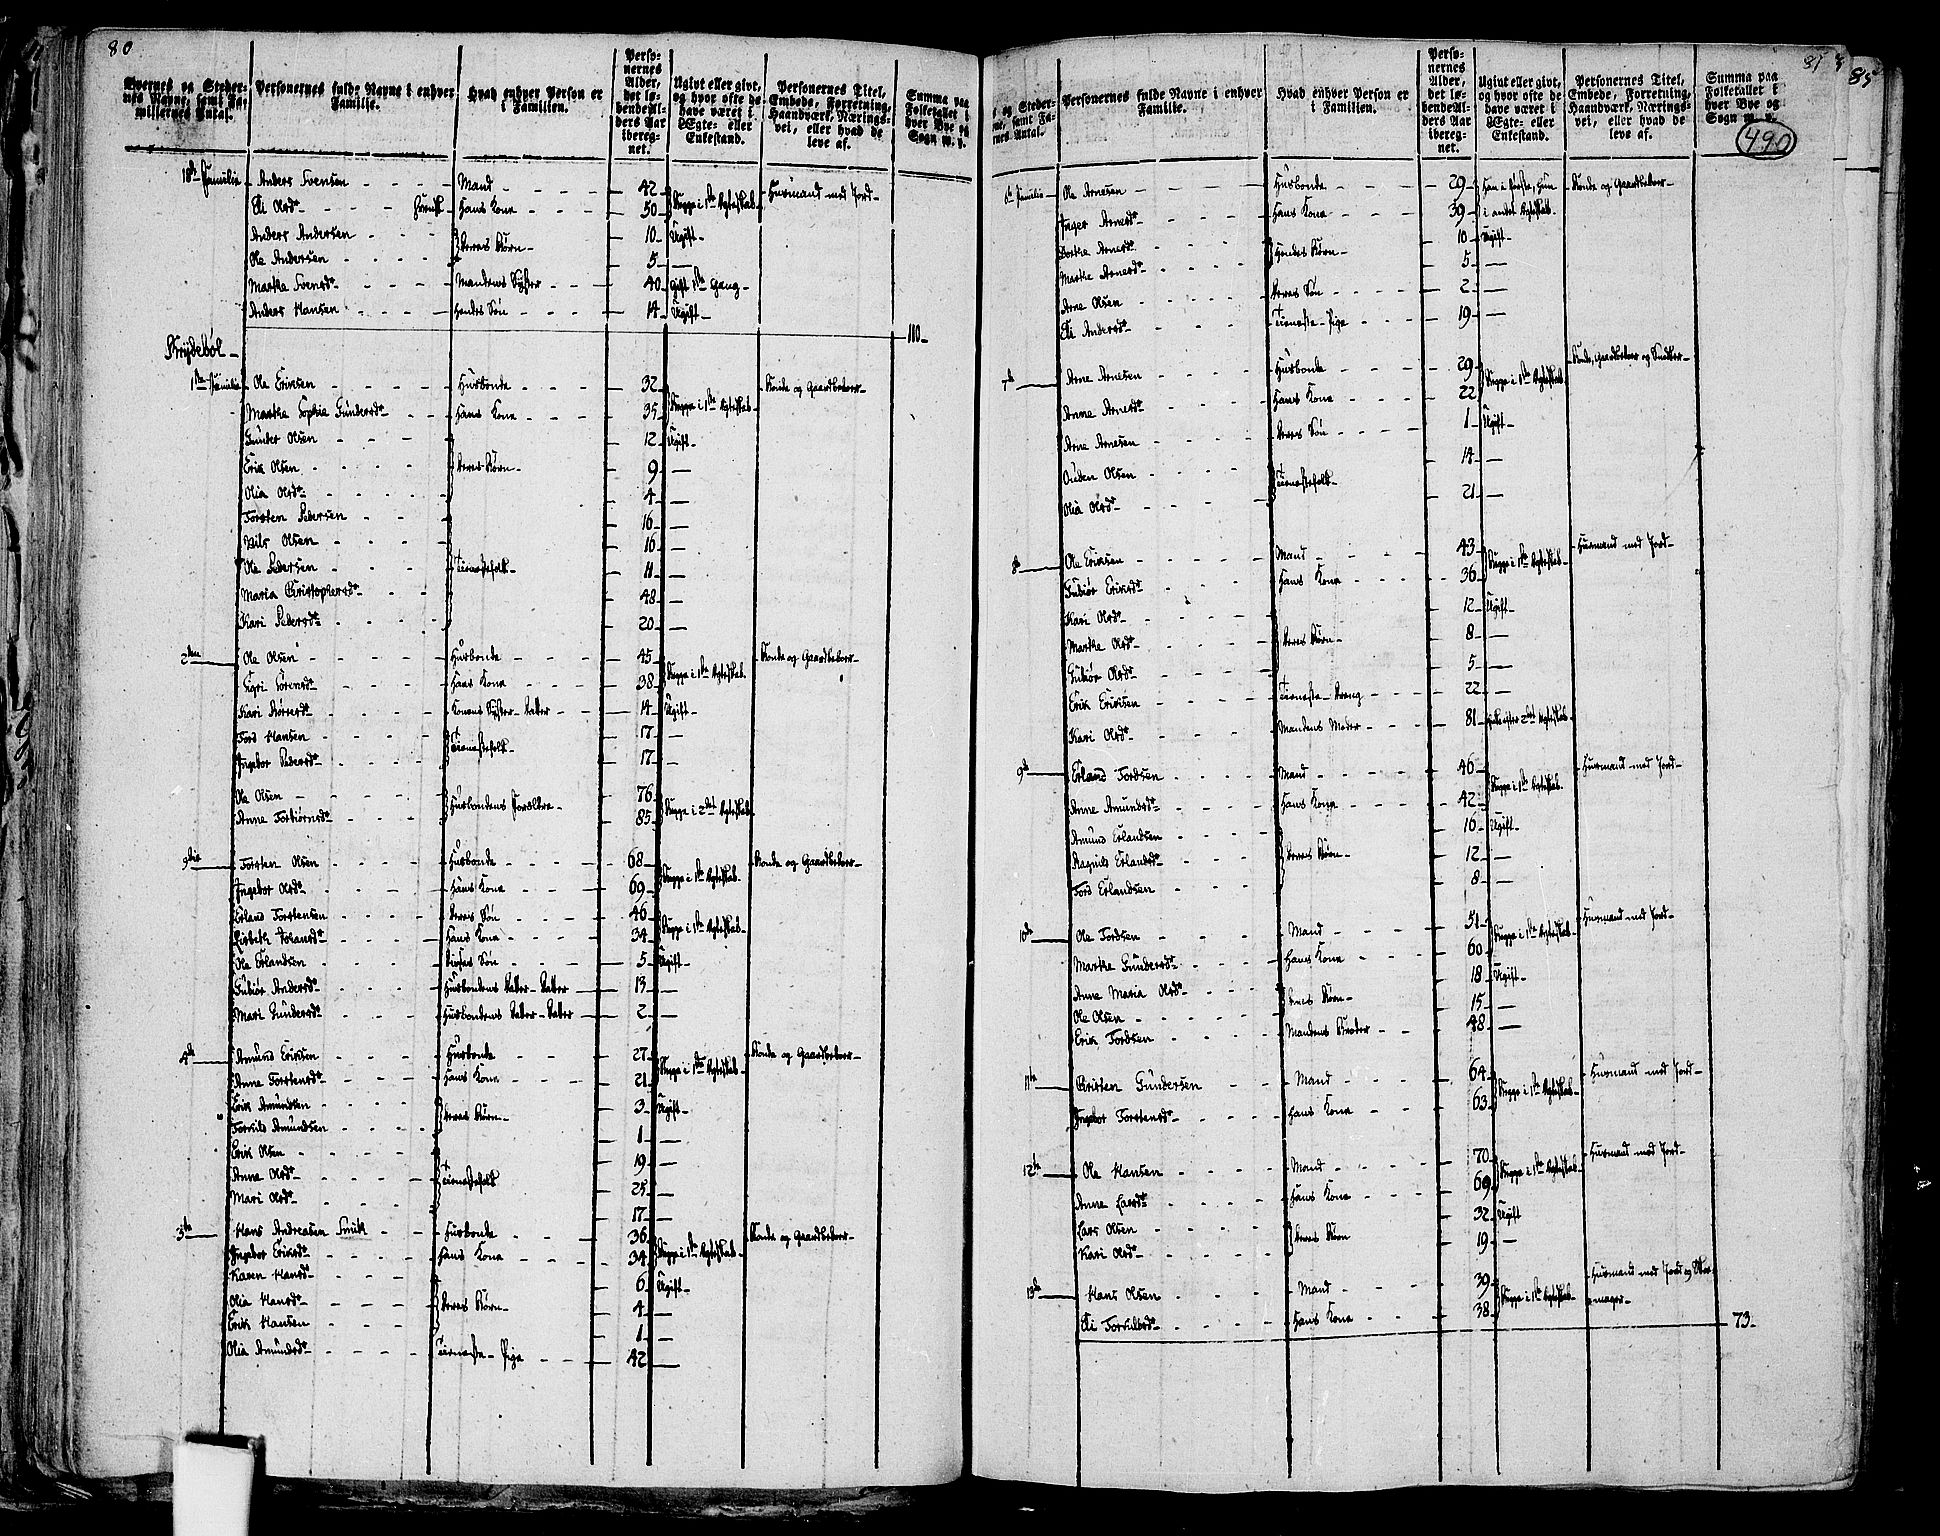 80
Byernes og Steder-
nes Navne, samt Fa-
miliernes Antal.
Personernes fulde Navne i enhver
Familie.
Hvad enhver Person er
i Familien.
Perso-
nernes
Alder,
det lø-
bende Al-
ders Aar
ibereg-
net.
Ugivt eller givt,
og hvor ofte de
have været i
Ægte- eller
Enkestand.
Personernes Titel,
Embede, Forretning,
Haandværk, Nærings-
vei, eller hvad de
leve af.
Summa paa
Folketallet i
hver Bye og
Sogn m. v.
18de Familie Anders Svensen Mand 42 Begge i 1ste Ægteskab Huusmand med Jord
Eli Olsdr Hans Kone 50
Anders Andersen Deres Børn 10 Ugift
Ole Andersen 5 —
Marthe Svensdr Mandens Syster 40 Gift 1ste Gang
Anders Hansen Hendes Søn 14 Ugift
110
1ste Familie Ole Eriksen Husbonde 32 Begge i 1ste Ægteskab Bonde og Gaardbeboer
Marthe Sophie Gundersdr Hans Kone 35
Gunder Olsen 12 Ugift
Erik Olsen Deres Børn 9 —
Olia Olsdr 4 —
Torsten Pedersen 16 —
Nils Olsen 16 —
Ole Pedersen Tienestefolk 11 —
Maria Christophersdr 48 —
Kari Pedersdr 20 —
2den Ole Olsen Husbonde 45 Begge i 1ste Ægteskab Bonde og Gaardbeboer
Hans Kone 38
Kari Konens Syster Datter 14 Ugift
Tord Hansen Tienestefolk 17 —
Ingebor Pedersdr 17 —
Ole Olsen Husbondens Forældre 76 Begge i 2det Ægteskab
Anne Torbiørnsdr 85
Torsten Olsen Husbonde 68 Begge i 1ste Ægteskab Bonde og Gaardbeboer
Ingebor Olsdr Hans Kone 69
Erland Torstensen Deres Søn 46 Begge i 1ste Ægteskab
Lisbeth Hans Kone 34
Ole Erlandsen Disses Søn 5 Ugift
Gubiør Andersdr Husbondens Datter Datter 13 —
Mari Gundersdr Husbondens Datter Datter 2 —
4de Amund Eriksen Husbonde 27 Begge i 1ste Ægteskab Bonde og Gaardbeboer
Anne Torstensdr Hans Kone 21
Erik Amundsen Deres Børn 3 Ugift
Torkild Amundsen 1 —
Erik Olsen 19 —
Anne Olsdr Tienestefolk 25 —
Mari Olsdr 17 —
5te Hans Andreasen Smith Husbonde 36 Begge i 1ste Ægteskab Bonde og Gaardbeboer
Ingebor Eriksdr Hans Kone 34
Karen Hansdr 6 Ugift
Olia Hansdr Deres Børn 4 —
Erik Hansen 1 —
Olia Amundsdr Tieneste Pige 42 —
81 8
85
490
s og Steder-
ne, samt Fa-
nes Antal.
Personernes fulde Navne i enhver
Familie.
Hvad enhver Person er
i Familien.
Perso-
nernes
Alder,
det lø-
bende Al-
ders Aar
ibereg-
net.
Ugivt eller givt,
og hvor ofte de
have været i
Ægte- eller
Enkestand.
Personernes Titel,
Embede, Forretning,
Haandværk, Nærings-
vei, eller hvad de
leve af.
Summa paa
Folketallet i
hver Bye og
Sogn m. v.
6te Familie Ole Arnesen Husbonde 29 Han i første, Hun Bonde og Gaardbeboer
Inger Arnesdr Hans Kone 39 i andet Ægteskab
Dorthe Arnesdr Hendes Børn 10 Ugift
Marthe Arnesdr 5 —
Arne Olsen Deres Søn 2 —
Eli Andersdr Tieneste Pige 19 —
7de Arne Arnesen Husbonde 29 Begge i 1ste Ægteskab Bonde, Gaardbeboer og Snedker
Anne Arnesdr Hans Kone 22
Arne Arnesen Deres Søn 1 Ugift
Ouden Olsen Tienestefolk 14 —
Olia Olsdr 21 —
8de Ole Eriksen Mand 43 Begge i 1ste Ægteskab Huusmand med Jord
Gubiør Eriksdr Hans Kone 36
Kari Olsdr 12 Ugift
Marthe Olsdr Deres Børn 8 —
Gubiør Olsdr 5 —
Erik Eriksen Tieneste Dreng 22 —
Kari Olsdr Mandens Moder 81 Enke efter 2det Ægteskab
9de Erland Tordsen Mand 46 Begge i 1ste Ægteskab Huusmand med Jord
Anne Amundsdr Hans Kone 42
Amund Erlandsen 16 Ugift
Ragnild Erlandsdr Deres Børn 12 —
Tord Erlandsen 8 —
10de Ole Tordsen Mand 51 Begge i 1ste Ægteskab Huusmand med Jord
Marthe Gundersdr Hans Kone 60
Anne Maria Olsdr Deres Børn 18 Ugift
Ole Olsen 15 —
Erik Tordsen Mandens Broder 48 —
11te Christen Gundersen Mand 64 Begge i 1ste Ægteskab Huusmand med Jord
Ingebor Torstensdr Hans Kone 63
12te Ole Hansen Mand 70 Begge i 1ste Ægteskab Huusmand med Jord
Anne Larsdr Hans Kone 69
Lars Olsen Deres Børn 32 Ugift
Kari Olsdr 19 —
13de Hans Olsen Mand 39 Begge i 1ste Ægteskab Huusmand med Jord og Sko-
Eli Torkildsdr Hans Kone 38 mager
73